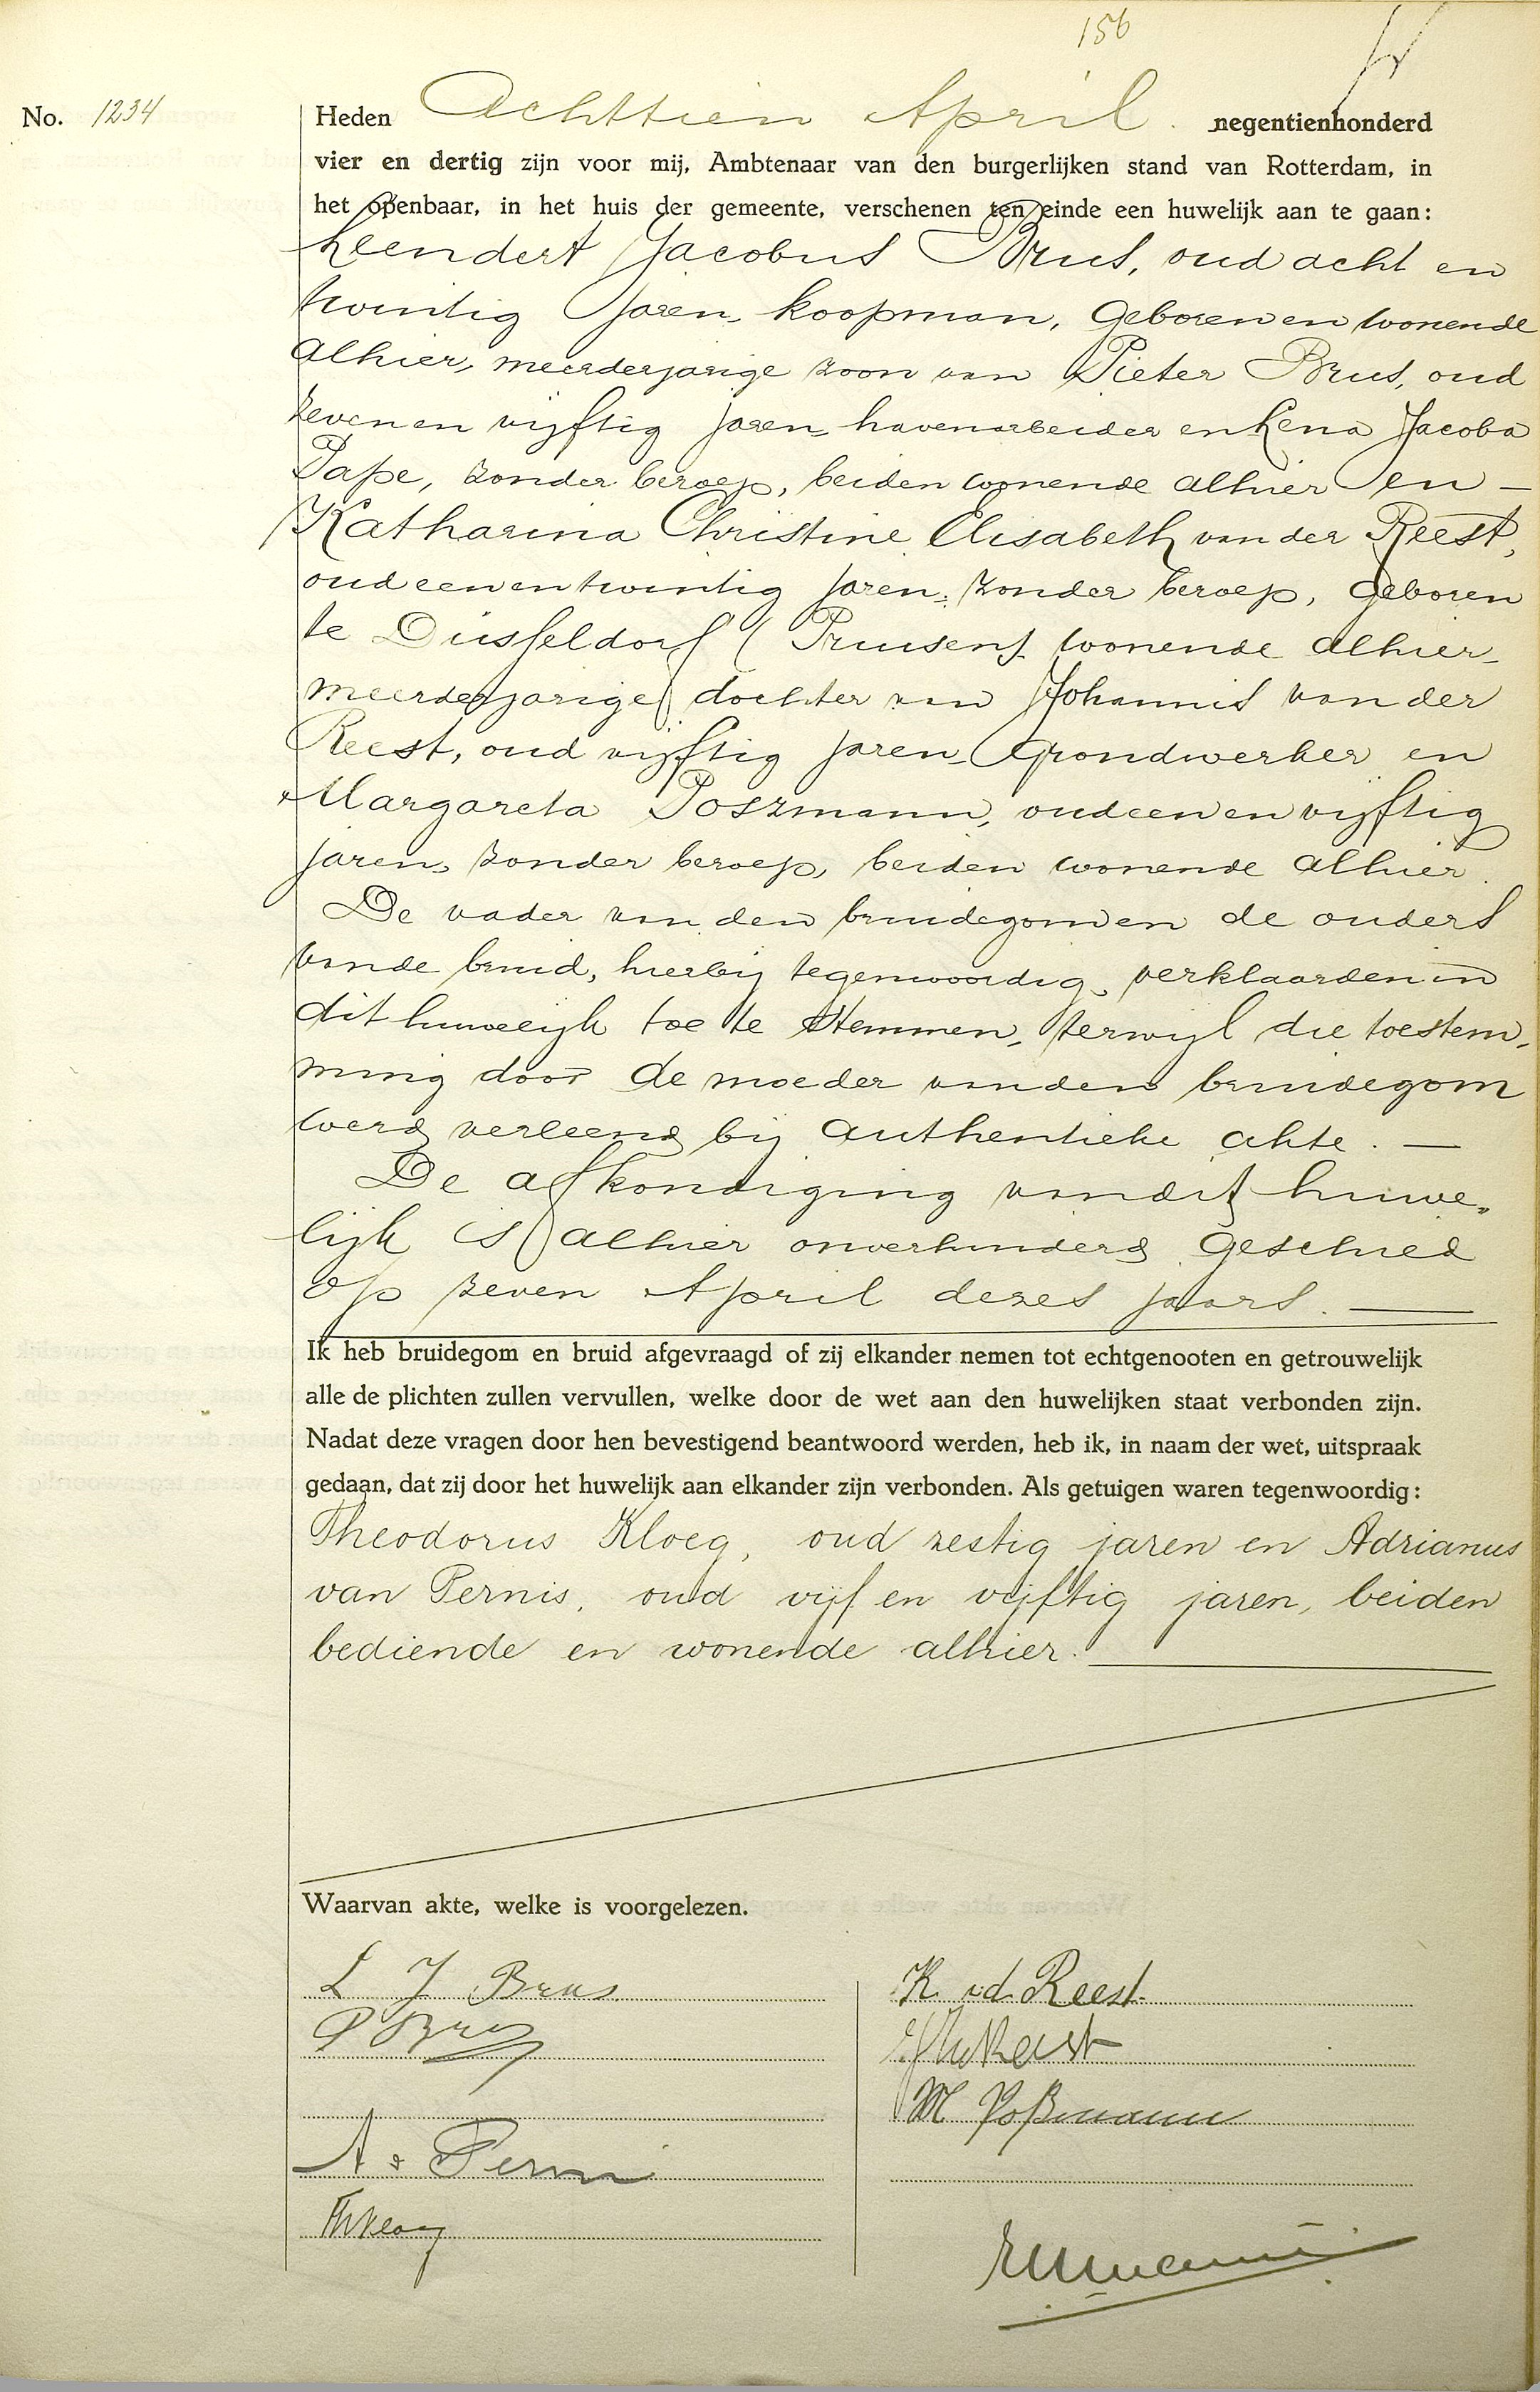 156
No. 1234
Heden Achttien April negentienhonderd
vier en dertig zijn voor mij, Ambtenaar van den burgerlijken stand van Rotterdam, in
het openbaar, in het huis der gemeente, verschenen ten einde een huwelijk aan te gaan:
Leendert Jacobus Brus, oud acht en
twintig jaren, koopman, geboren en wonende
alhier, meerderjarige zoon van Pieter Brus, oud
zeven en vijftig jaren, havenarbeider en Lena Jacoba
Pape, zonder beroep, beiden wonende alhier en —
Katharina Christine Elisabeth van der Reest,
oud een en twintig jaren, zonder beroep, geboren
te Düsseldorf (Pruisen) wonende alhier,
meerderjarige dochter van Johannis van der
Reest, oud vijftig jaren, grondwerker en
Margareta Poszmann, oud een en vijftig
jaren, zonder beroep, beiden wonende alhier.
De vader van den bruidegom en de ouders
van de bruid, hierbij tegenwoordig, verklaarden in
dit huwelijk toe te stemmen, terwijl die toestem-
ming door de moeder van den bruidegom
werd verleend bij authentieke akte. —
De afkondiging van dit huwe-
lijk is alhier onverhinderd geschied
op zeven April dezes jaars. —
Ik heb bruidegom en bruid afgevraagd of zij elkander nemen tot echtgenooten en getrouwelijk
alle de plichten zullen vervullen, welke door de wet aan den huwelijken staat verbonden zijn.
Nadat deze vragen door hen bevestigend beantwoord werden, heb ik, in naam der wet, uitspraak
gedaan, dat zij door het huwelijk aan elkander zijn verbonden. Als getuigen waren tegenwoordig:
Theodorus Kloeg, oud zestig jaren en Adrianus
van Pernis, oud vijf en vijftig jaren, beiden
bediende en wonende alhier.
Waarvan akte, welke is voorgelezen.
L J Brus
P Brus
A v Pernis
Th Kloeg
K. v.d. Reest.
M Poßmann